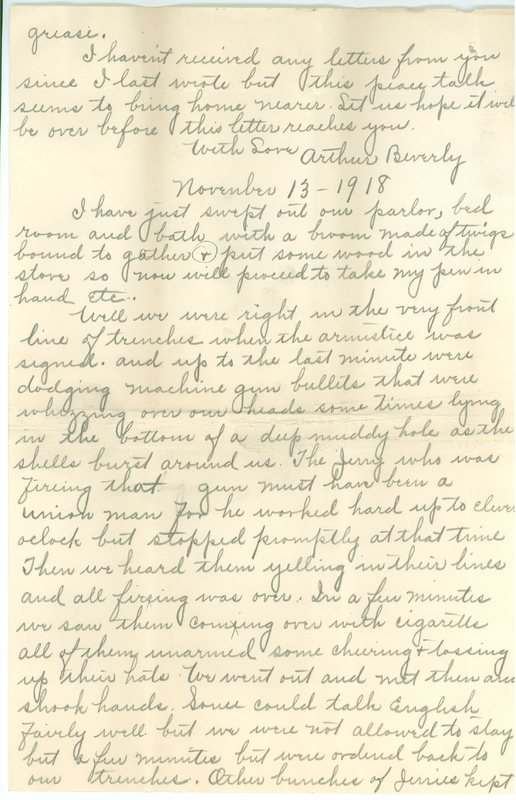 grease.
I haven't received any letters from you
since I last wrote but this peace talk
seems to bring home nearer. Let us hope it will
be over before this letter reaches you.
With Love Arthur Beverly
November 13-1918
I have just swept out our parlor, bed
room and bath with a broom made of twigs
bound to gather & put some wood in the
stove so now will proceed to take my pen in
hand etc.
Well we were right in the very front
line of trenches when the armistice was
signed. and up to the last minute were
dodging machine gun bullits that were
whizzing over our heads some times lying
in the bottom of a deep muddy hole as the
shells burst around us. The Jerry who was
fireing that gun must have been a
union man for he worked hard up to eleven
oclock but stopped promptly at that time
Then we heard them yelling in their lines
and all firing was over. In a few minutes
we saw them coming over with cigaretts
all of them unarmed some cheering & tossing
up their hats We went out and met them and
shook hands. Some could talk English
fairly well but we were not allowed to stay
but a few minutes but were ordered back to
our trenches. Other bunches of Jerries kept